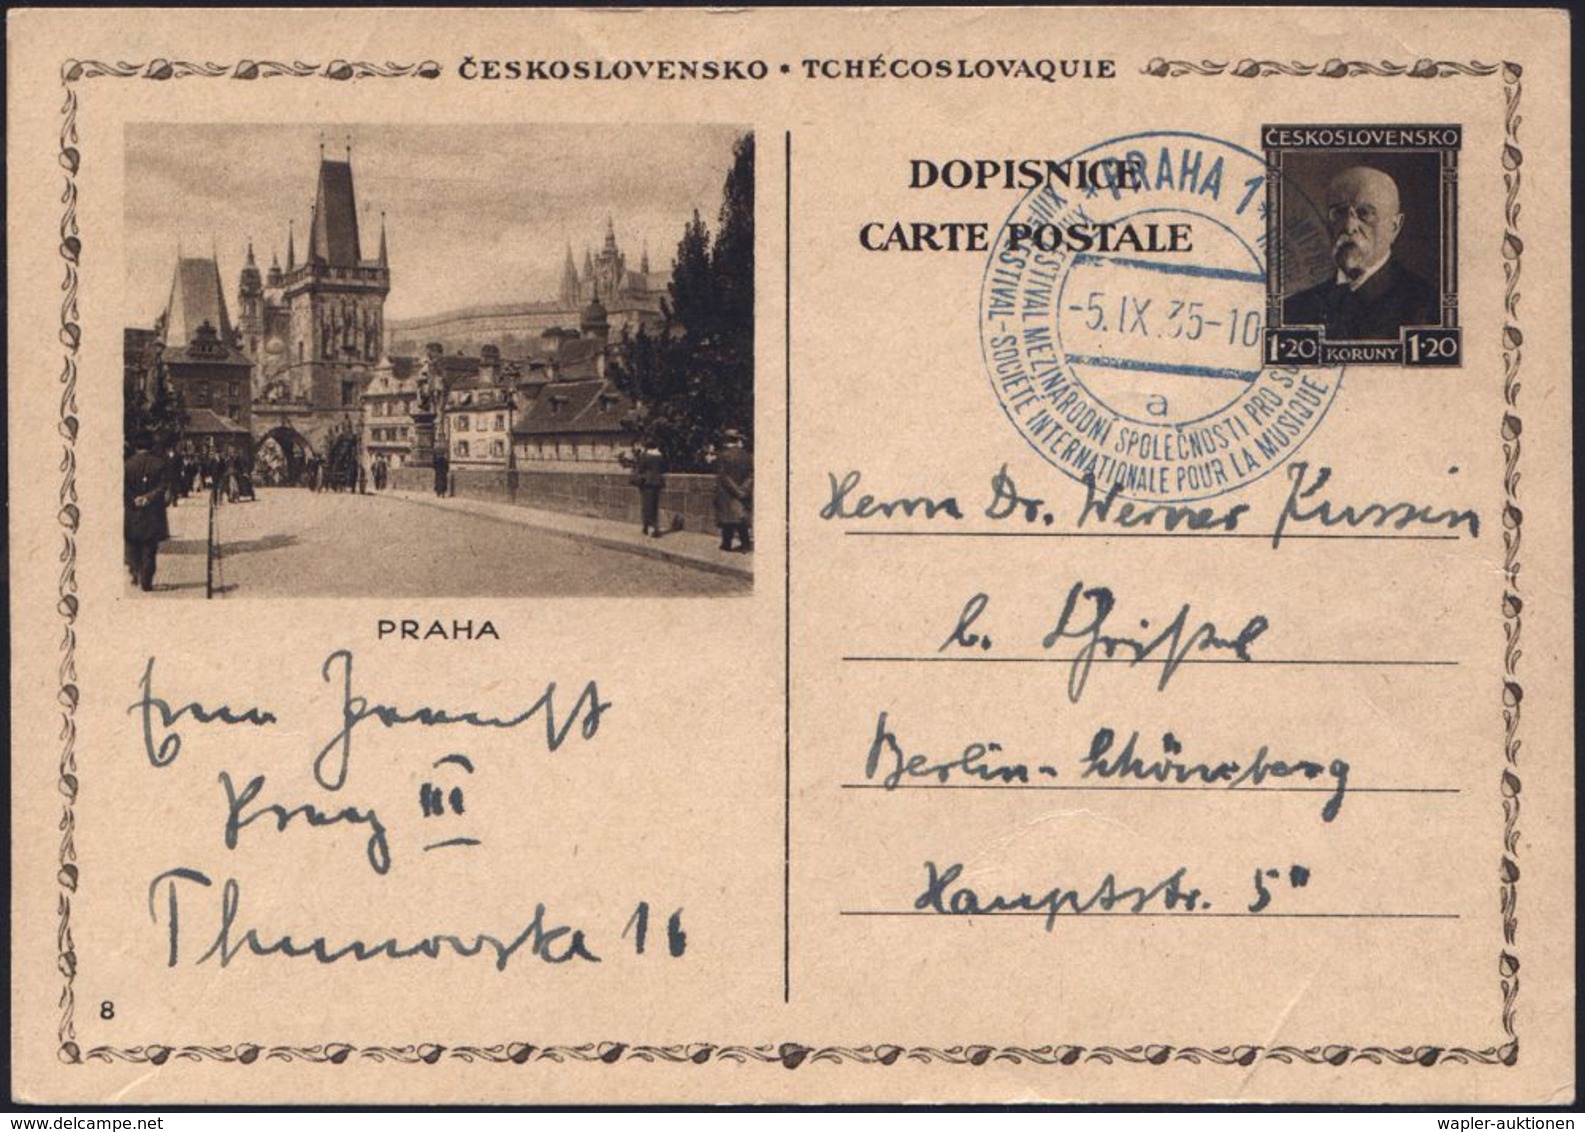 ČESKOSLOVENSKO • TCHÉCOSLOVAQUIE
DOPISNICE
CARTE POSTALE
ČESKOSLOVENSKO
1·20 KORUNY 1·20
* PRAHA 1 *
-5.IX.35-10
a
XIII. FESTIVAL MEZINÁRODNÍ SPOLEČNOSTI PRO
FESTIVAL-SOCIÉTÉ INTERNATIONALE POUR LA MUSIQUE
PRAHA
Herrn Dr. Werner Kussin
b. Christel
Berlin-Schöneberg
Hauptstr. 5
Prag III
Thunovska 16
8
delcampe.net
wapler-auktionen